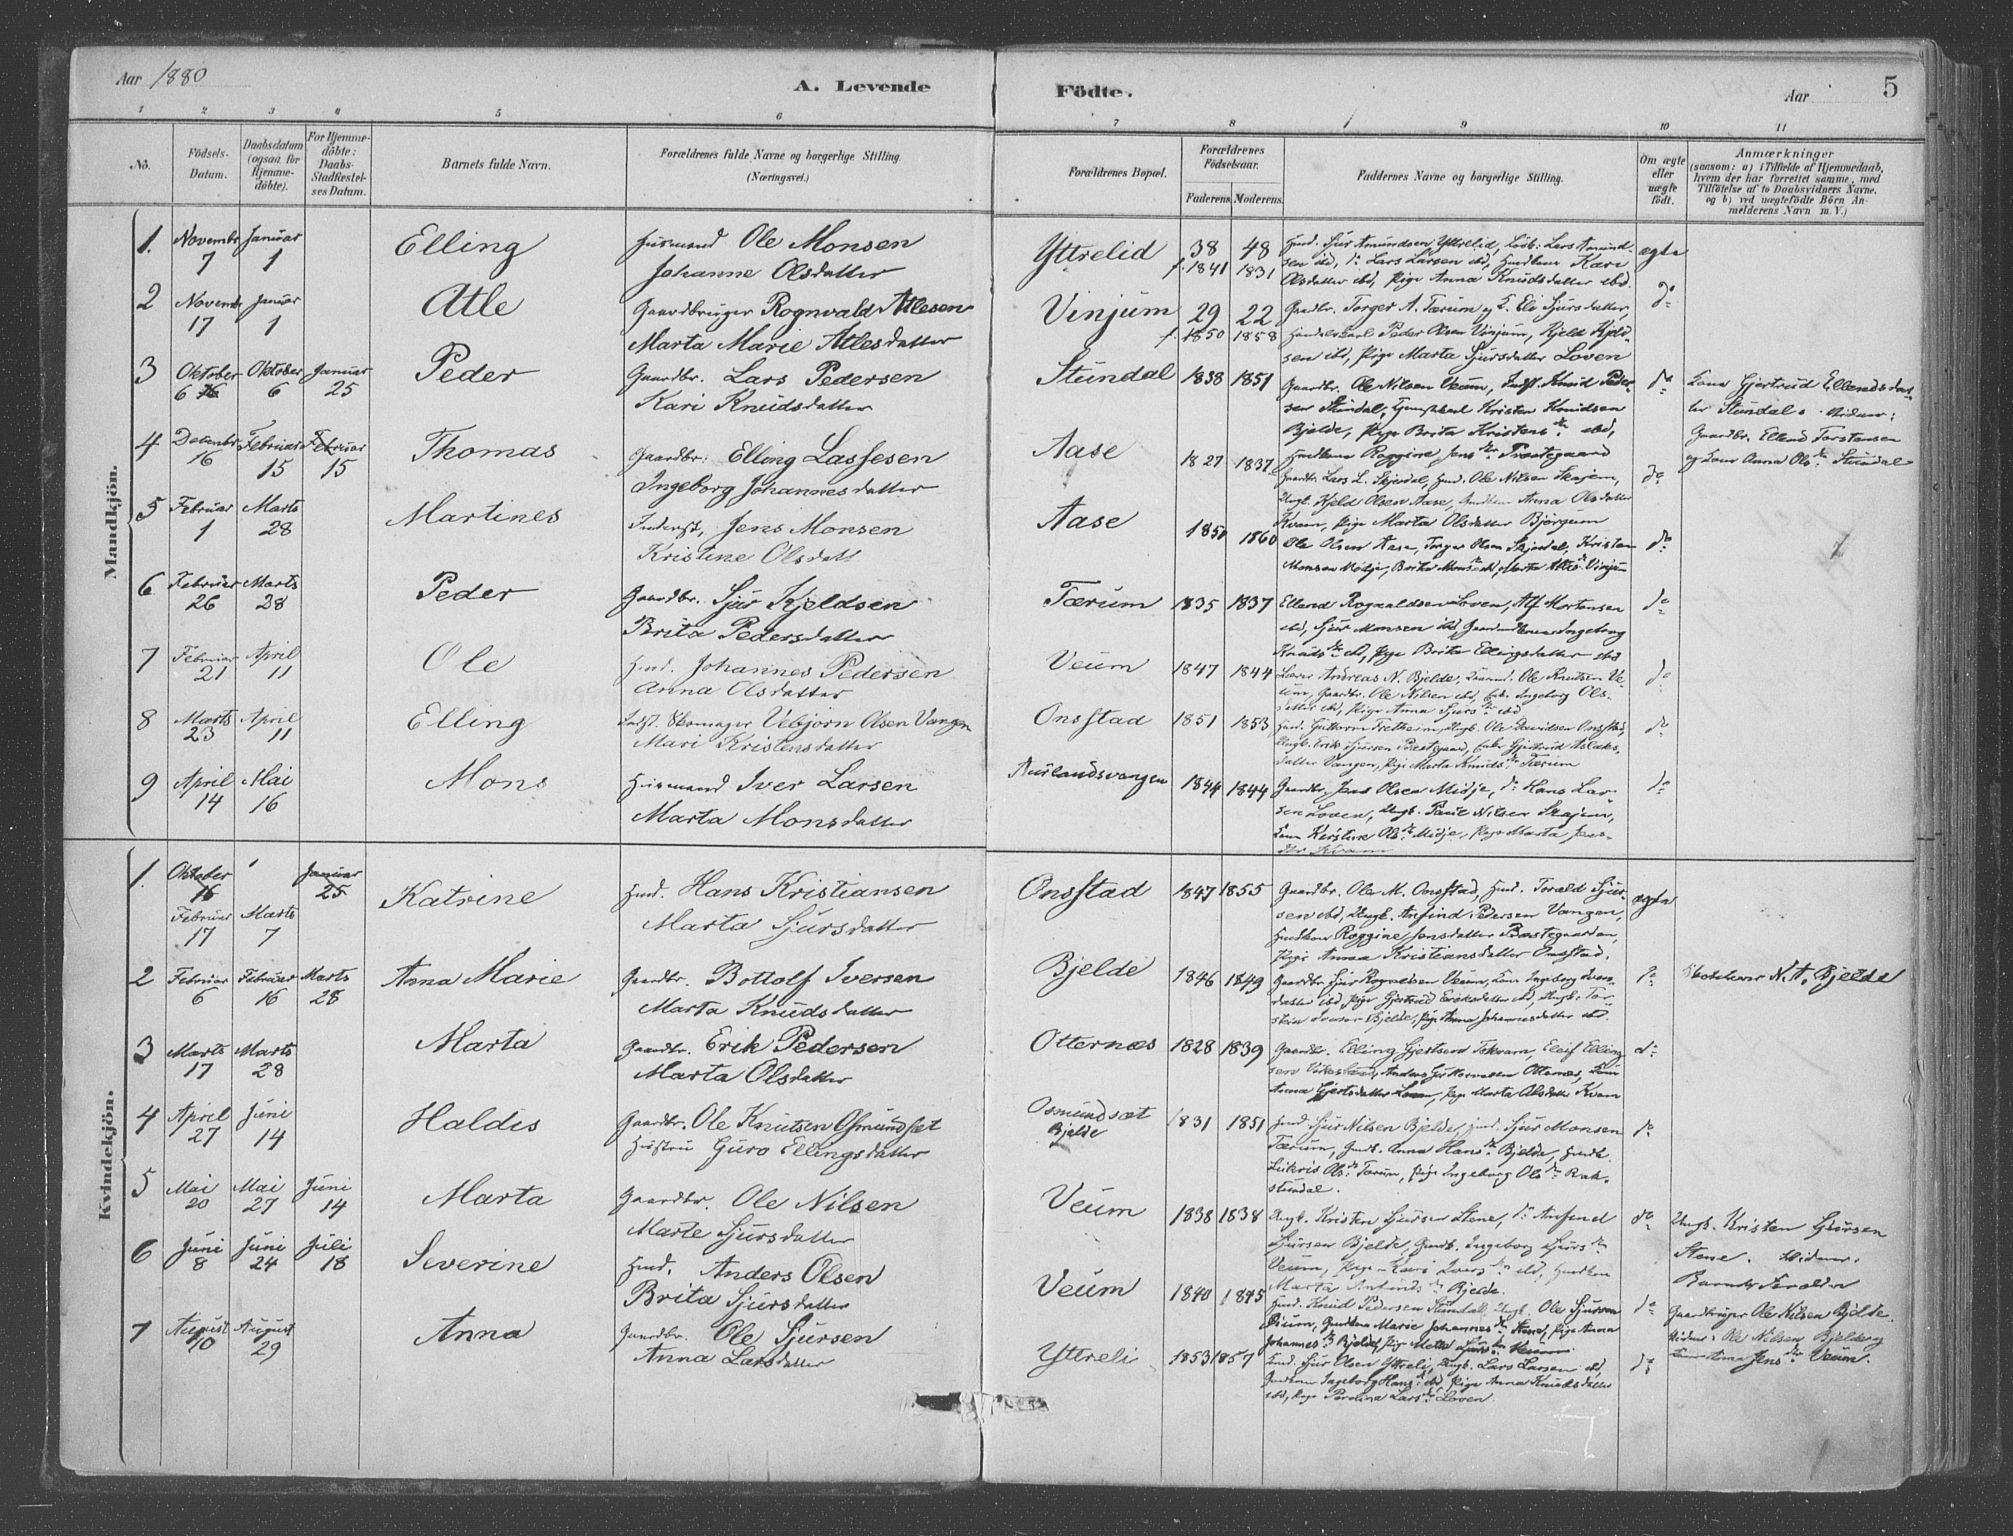 Aar 1880
A. Levende
Födte.
Aar
5
1 2 3 4 5 6 7 8 9 10 11
No.
Födsels-Datum.
Daabsdatum (ogsaa for Hjemmedöbte).
For Hjemmedöbte: Daabs-Stadfæstelses Datum.
Barnets fulde Navn.
Forældrenes fulde Navne og borgerlige Stilling. (Næringsvei.)
Forældrenes Bopæl.
Forældrenes Födselsaar.
Faderens Moderens
Faddernes Navne og borgerlige Stilling.
Om ægte eller uægte födt.
Anmærkninger
(saasom: a) i Tilfælde af Hjemmedaab, hvem der har forrettet samme, med Tilföielse af to Daabsvidners Navne, og b) ved uægtefödte Börn Anmelderens Navn m. V.)
Mandkjön.
1. Novembr 7 Januar 1 Elling Husmand Ole Monsen
Johanne Olsdatter
Yttrelid 38 48 f. 1841 1831
Husd. Sjur Amundsen Yttrelid, Lars Amundsen ibd, do Lars Larsen ibd, Kari
Olsdatter ibd, Pige Anna Knudsdatter ibd.
ægte
2 Novembr 17 Januar 1 Atle Gaardbruger Rognvald Atlesen
Marta Marie Atlesdatter
Vinjum 29 22 f. 1850 1858
Gaardbr. Torger A. Tærum og K. Eli Sjursdatter,
Peder Olsen Vinjum, Kjeld Kjeldsen ibd, Pige Marta Sjursdatter Loven
do
3 Oktober 6 Oktober 6 Januar 25 Peder Gaardbr. Lars Pedersen
Kari Knudsdatter
Stundal 1838 1851
Gaardbr. Ole Nilsen Veum, Indst. Knud Pedersen Stundal, Kristen Knudsen
Bjelde, Pige Brita Kristensdr ibd,
do
Kone Gjertrud Ellendsdatter Stundal. Vidner:
Gaardbr. Ellend Torstensen
og Kone Anna Olsdr Stundal
4 Decembr 16 Februar 15 Februar 15 Thomas Gaardbr. Elling Lassesen
Ingeborg Johannesdatter
Aase 1827 1837
Roggine Jensdr Præstegaard
Gaardbr. Lars L. Skjerdal, Husd. Ole Nilsen Skajem,
Ungk. Kjeld Olsen Aase, Anna Olsdatter
Kvam, Pige Marta Olsdatter Bjørgum
do
5 Februar 1 Marts 28 Martines Jens Monsen
Kristine Olsdatt
Aase 1850 1860
Ole Olsen Aase, Torger Olsen Skjerdal, Kristen
Monsen Midje, Brita Monsdr ibd, Marta Atlesdr Vinjum
do
6 Februar 26 Marts 28 Peder Gaardbr. Sjur Kjeldsen
Brita Pedersdatter
Tærum 1835 1837
Ellend Rognaldsen Loven, Alf Mortensen
ibd, Sjur Monsen ibd, Ingeborg
Knudsdr ibd, Pige Brita Ellingsdatter ibd
do
7 Februar 21 April 11 Ole Husd. Johannes Pedersen
Anna Olsdatter
Veum 1847 1844
Lærer Andreas N. Bjelde, Ole Knutsen Veum, Gaardbr. Ole Nilsen ibd, Enke Ingeborg Olsdatter ibd, Pige Anna Sjursdr ibd
do
8 Marts 23 April 11 Elling Indst. Skomager Vebjørn Olsen Vangen
Mari Kristensdatter
Onsstad 1851 1853
Husd. Guttorm Fretheim, Ungk. Ole Davidsen Onsstad,
Ungk. Erik Sjursen Prestegaard, Enke Gjertrud Aslaksdatter Vangen, Pige Marta Knudsdr Tærum
do
9 April 14 Mai 16 Mons Husmand Iver Larsen
Marta Monsdatter
Aurlandsvangen 1844 1844
Gaardbr. Jens Olsen Midje, do Hans Larsen Loven, Ungk. Paul Nilsen Skajem,
Kone Kristine Olsdr Midje, Pige Marta Jensdtr Kvam
do
Kvindekjön.
1. Oktober 16 Januar 25
Februar 17 Marts 7 Katrine Husd. Hans Kristiansen
Marta Sjursdatter
Onsstad 1847 1855
Gaardbr. Ole M. Onsstad, Husd. Torald Sjursen ibd, Ungk. Anfind Pedersen Vangen,
Roggine Jensdatter Præstegaarden,
Pige Anna Kristiansdatter Onsstad.
ægte
2 Februar 6 Februar 16 Marts 28 Anna Marie Gaardbr. Bottolf Iversen
Marta Knudsdatter
Bjelde 1846 1849
Gaardbr. Sjur Rognaldsen Veum, Kone Ingeborg Iversdatter ibd, Pige Gjertrud Eriksdatter ibd, Ungk. Torstein Iversen Bjelde, Pige Anna Johannesdatter ibd.
do
N. A. Bjelde
3 Marts 17 Marts 28 Marta Gaardbr. Erik Pedersen
Marta Olsdatter
Otternæs 1828 1839
Gaardbr. Elling Gjertsen Tokvam, Eleif Ellingsen, Anders Otternes, Kone
Anna Gjertsdatter Loven, Pige Marta Olsdatter Kvam
do
4 April 27 Juni 14 Haldis Gaardbr. Ole Knutsen Osmundset
Hustru Guro Ellingsdatter
Osmundsæt
Bjelde
1831 1851
Husd Sjur Nilsen Bjelde, Husd. Sjur Monsen
Tærum, Anna Hansdr Bjelde,
Lukris Olsdr Tærum, Pige Ingeborg Olsdr Rakstundal.
do
5 Mai 20 Mai 27 Juni 14 Marta Gaardbr. Ole Nilsen
Marte Sjursdatter
Veum 1838 1838
Ungk. Kristen Sjursen Stene, do Anfind
Sjursen Bjelde, Ingeborg Sjursdr
Veum, Pige Kari Larsdr ibd,
Marta Bjelde.
do
Ungk. Kristen Sjursen
Stene. Vidner:
Barnets Forældre
6 Juni 8 Juni 24 Juli 18 Severine Husd. Anders Olsen
Brita Sjursdatter
Veum 1840 1845
Husd. Knud Pedersen Stundal, Ungk. Ole Sjursen
Veum, Marie Johannesdr, Pige Anna
Johannesdr Bjelde, Pige Veum
do
Gaardbruger Ole Nilsen Bjelde.
Vidner: Ole Nilsen Bjelde og
Kone Anna Jensdr Veum.
7 August 10 August 29 Anna Gaardbr. Ole Sjursen
Anna Larsdatter
Yttreli 1853 1857
Husd. Sjur Olsen Yttreli, Ungk. Lars Larsen ibd,
Ingeborg Hansdr ibd, Pige Anna Knudsdatter
ibd, Pige Larsdr Loven.
do